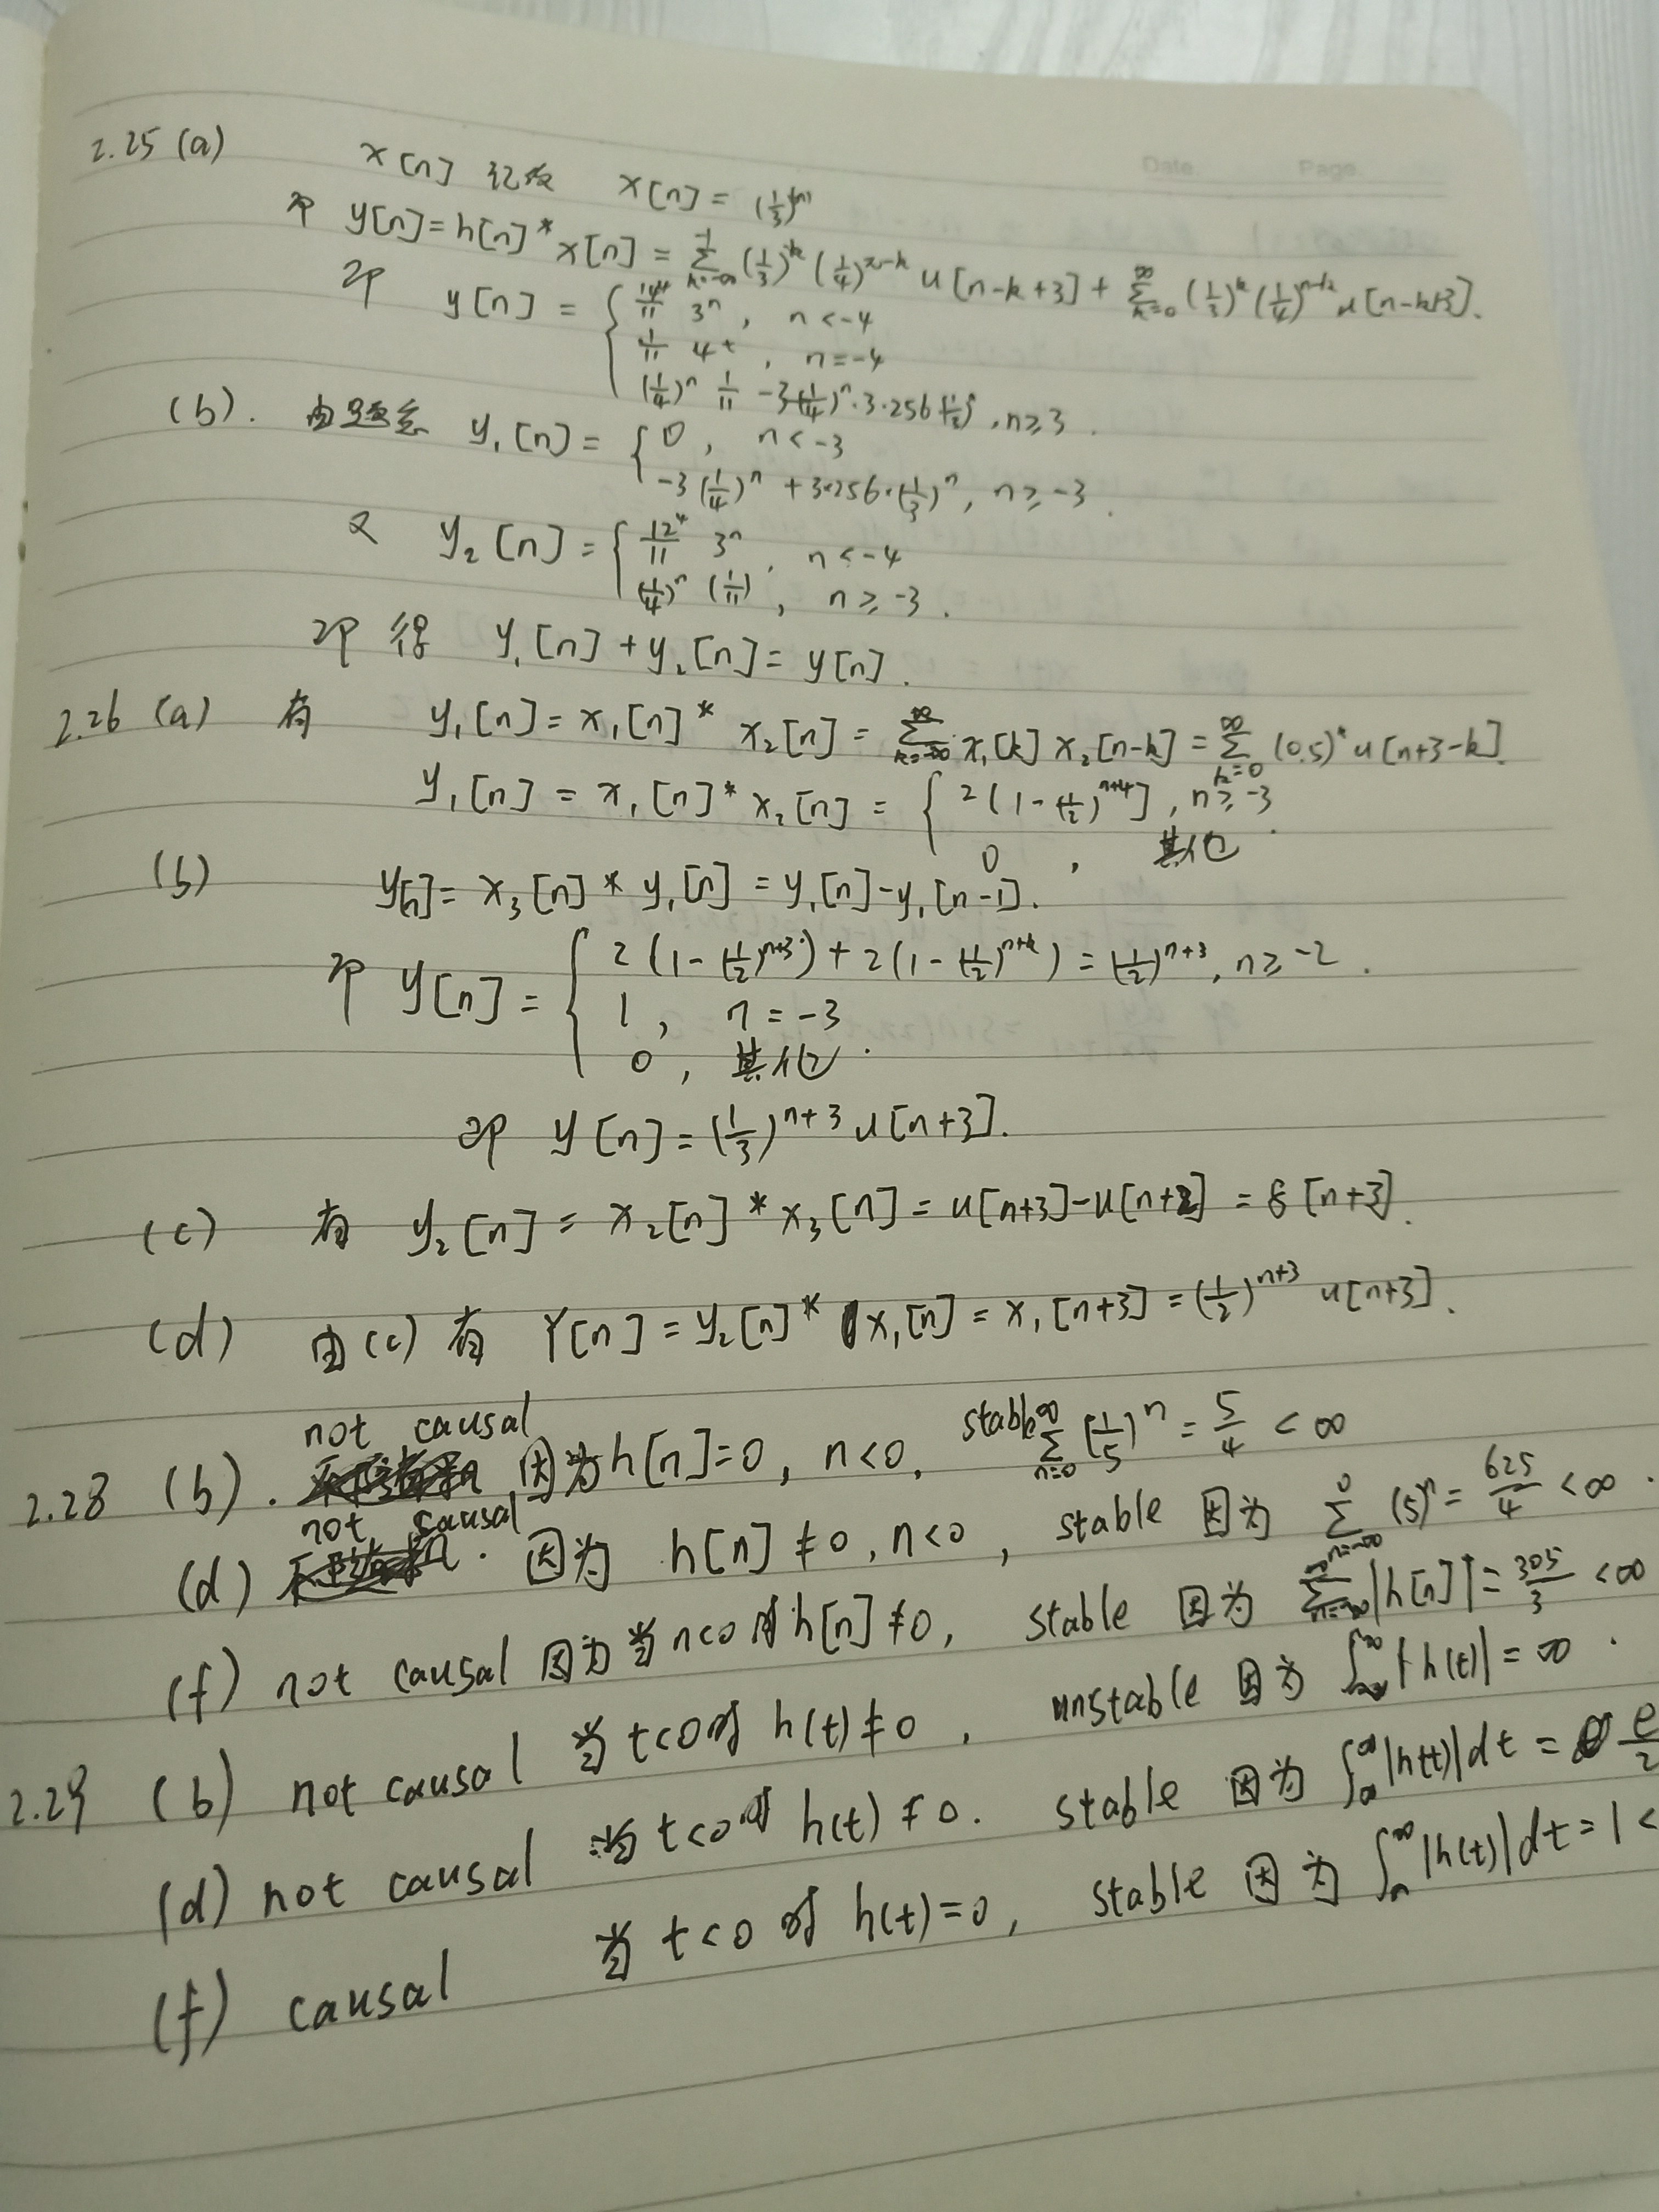 Date. Page.
2.25 (a) x[n] x[n] = (1/3)^|n|
y[n] = h[n] * x[n] = Σ_{k=-∞}^{-1} (1/3)^{-k} (1/4)^{n-k} u[n-k+3] + Σ_{k=0}^{∞} (1/3)^k (1/4)^{n-k} u[n-k+3].
即 y[n] = { 12⁴/11 3ⁿ, n<-4
1/11 4⁴, n=-4
(1/4)ⁿ 1/11 -3(1/4)ⁿ·3·256(1/3)ⁿ, n≥3.
(b). 由题意 y₁[n] = { 0, n<-3
-3(1/4)ⁿ + 3·256·(1/3)ⁿ, n≥-3.
又 y₂[n] = { 12⁴/11 3ⁿ, n<-4
(1/4)ⁿ (1/11), n≥-3.
即得 y₁[n] + y₂[n] = y[n].
2.26 (a) 有 y₁[n] = x₁[n] * x₂[n] = Σ_{k=-∞}^{∞} x₁[k] x₂[n-k] = Σ_{k=0}^{∞} (0.5)^k u[n+3-k].
y₁[n] = x₁[n] * x₂[n] = { 2(1-(1/2)^{n+4}], n≥-3.
0, 其他
(b) y[n] = x₃[n] * y₁[n] = y₁[n] - y₁[n-1].
即 y[n] = { 2(1-(1/2)^{n+3}) + 2(1-(1/2)^{n+4}) = (1/2)^{n+3}, n≥-2.
1, n=-3
0, 其他.
即 y[n] = (1/3)^{n+3} u[n+3].
(c) 有 y₂[n] = x₂[n] * x₃[n] = u[n+3] - u[n+2] = δ[n+3].
(d) 由(c)有 Y[n] = y₂[n] * x₁[n] = x₁[n+3] = (1/2)^{n+3} u[n+3].
2.28 (b). not causal 因为 h[n]=0, n<0, stable Σ_{n=0}^{∞} (1/5)ⁿ = 5/4 < ∞
(d) not causal. 因为 h[n]≠0, n<0, stable 因为 Σ_{n=-∞}^{0} (5)ⁿ = 625/4 < ∞.
(f) not causal 因为当n<0时h[n]≠0, stable 因为 Σ_{n=-∞}^{∞} |h[n]| = 305/3 < ∞
2.29 (b) not causal 当t<0时 h(t)≠0, unstable 因为 ∫_{-∞}^{∞} |h(t)| = ∞.
(d) not causal 当t<0时 h(t)≠0. stable 因为 ∫ |h(t)|dt = e/2
(f) causal 当t<0时 h(t)=0, stable 因为 ∫ |h(t)|dt = 1 <